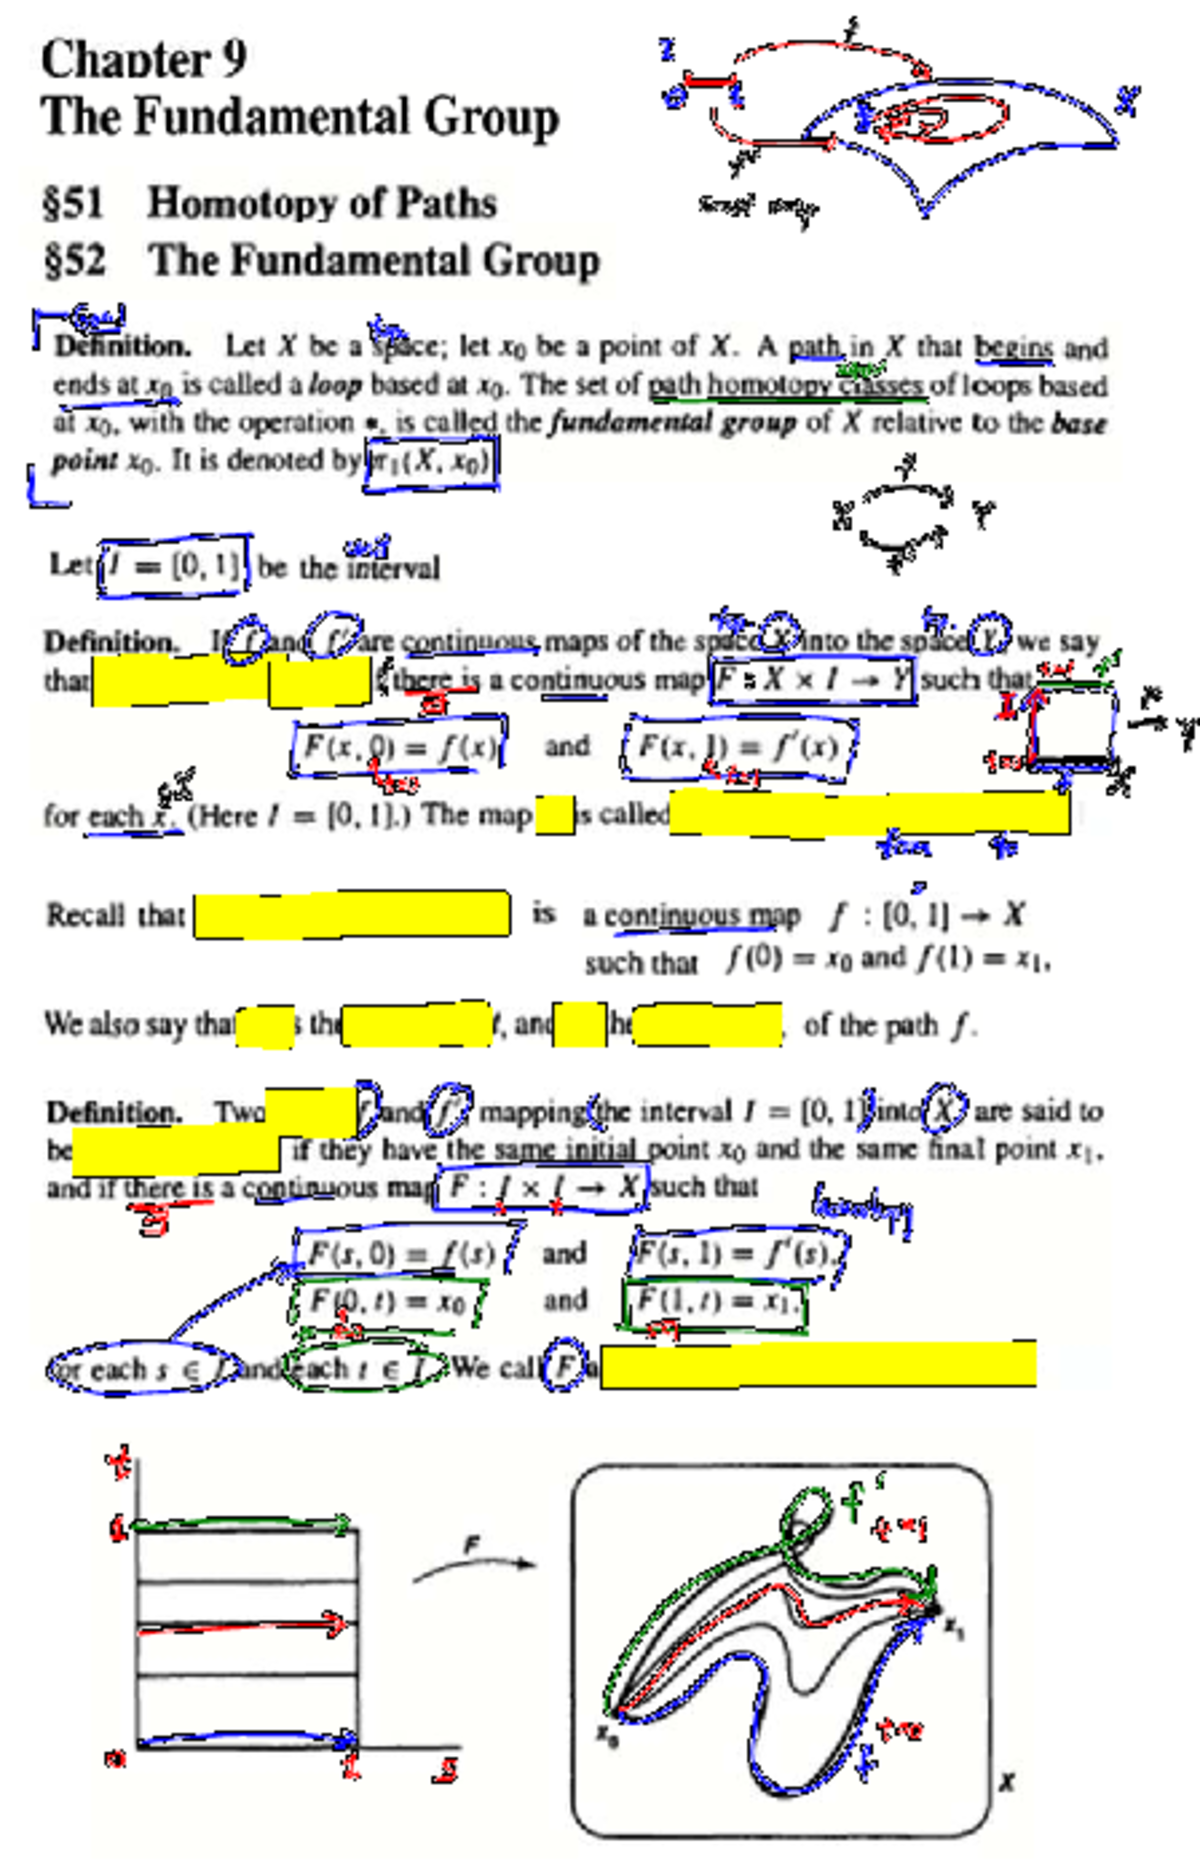 Chapter 9
The Fundamental Group
§51 Homotopy of Paths
§52 The Fundamental Group
Definition. Let X be a space; let x₀ be a point of X. A path in X that begins and
ends at x₀ is called a loop based at x₀. The set of path homotopy classes of loops based
at x₀, with the operation *, is called the fundamental group of X relative to the base
point x₀. It is denoted by π₁(X, x₀)
Let I = [0, 1] be the interval
Definition. If f and f′ are continuous maps of the space X into the space Y, we say
that there is a continuous map F : X × I → Y such that
F(x, 0) = f(x) and F(x, 1) = f′(x)
for each x. (Here I = [0, 1].) The map is called
Recall that is a continuous map f : [0, 1] → X
such that f(0) = x₀ and f(1) = x₁.
We also say that the , and the , of the path f.
Definition. Two f and f′, mapping the interval I = [0, 1] into X, are said to
be if they have the same initial point x₀ and the same final point x₁,
and if there is a continuous map F : I × I → X such that
F(s, 0) = f(s) and F(s, 1) = f′(s),
F(0, t) = x₀ and F(1, t) = x₁,
for each s ∈ I and each t ∈ I. We call F a
t
1
F
f'
t=1
x₁
x₀
t=0
f
0
1
s
X